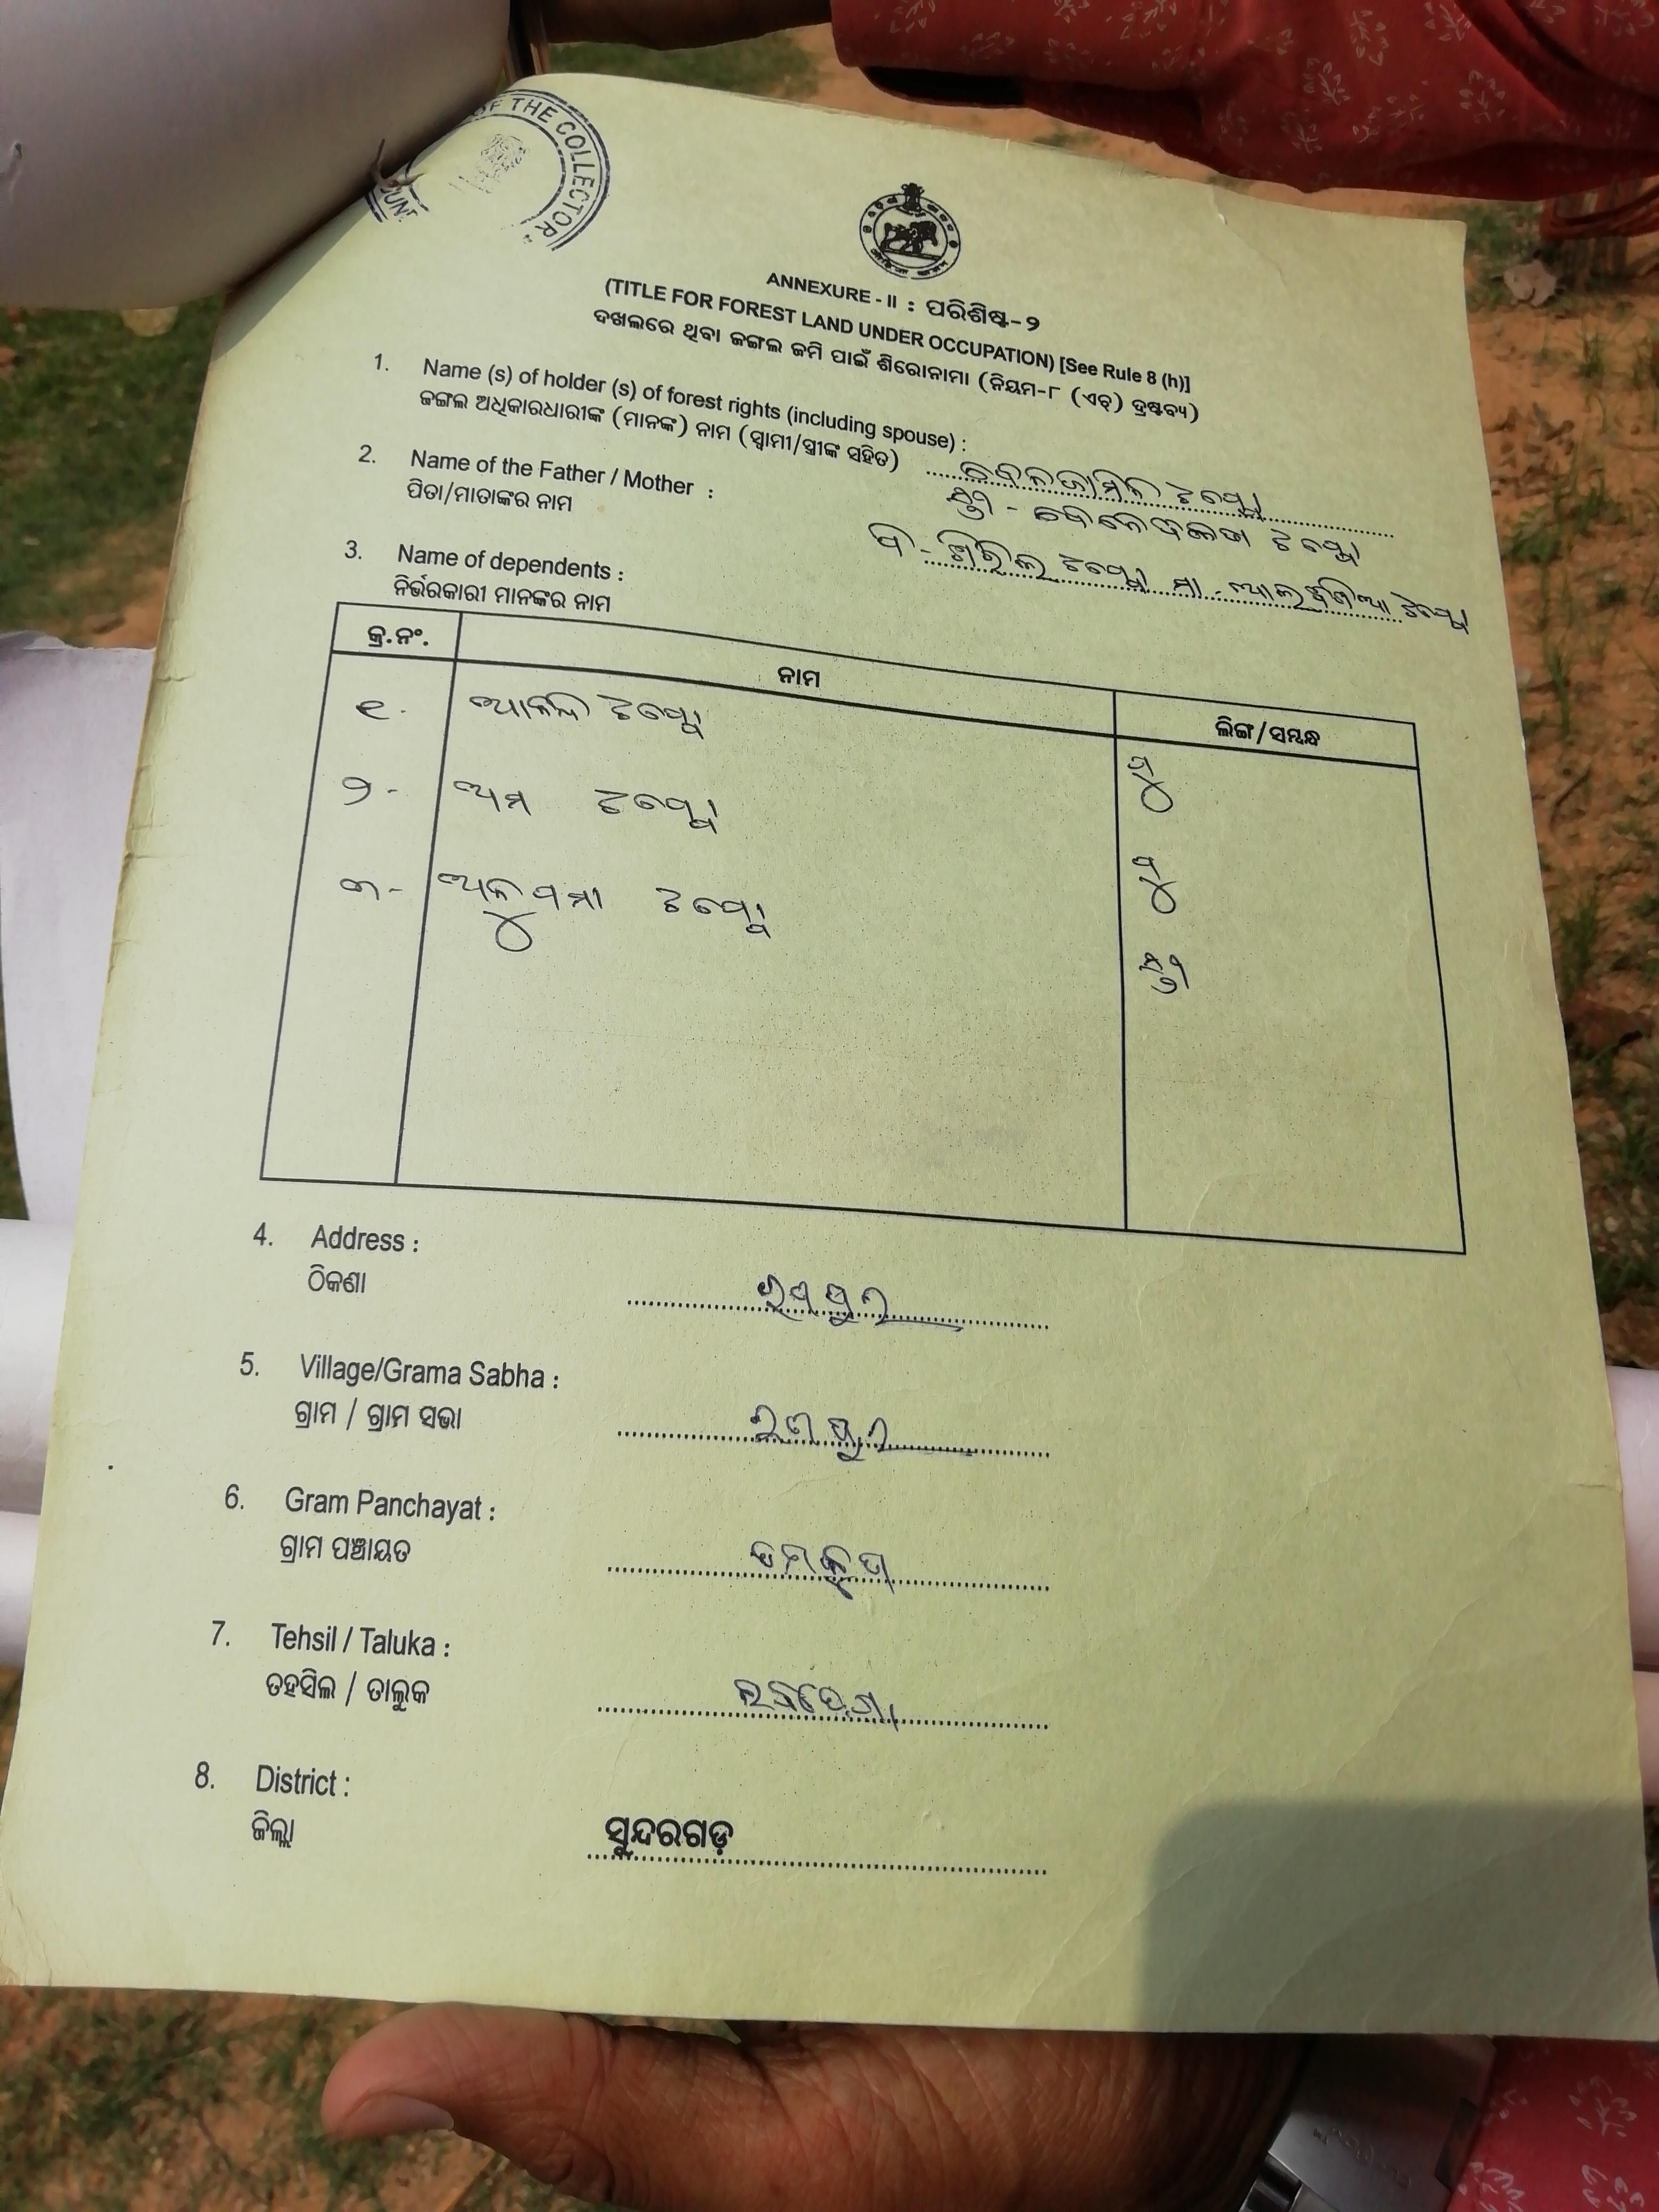 OF THE COLLECTOR
ANNEXURE - II : ପରିଶିଷ୍ଟ-୨
(TITLE FOR FOREST LAND UNDER OCCUPATION) [See Rule 8 (h)]
ଦଖଲରେ ଥିବା ଜଙ୍ଗଲ ଜମି ପାଇଁ ଶିରୋନାମା (ନିୟମ-୮ (ଏଚ୍) ଦ୍ରଷ୍ଟବ୍ୟ)
1. Name (s) of holder (s) of forest rights (including spouse) :
ଜଙ୍ଗଲ ଅଧିକାରଧାରୀଙ୍କ (ମାନଙ୍କ) ନାମ (ସ୍ୱାମୀ/ସ୍ତ୍ରୀଙ୍କ ସହିତ) ବେନଜାମିନ ଟପ୍ପୋ
ସ୍ତ୍ରୀ - ଟପ୍ପୋ
2. Name of the Father / Mother :
ପିତା/ମାତାଙ୍କର ନାମ ପି - ଟପ୍ପୋ ମା - ଟପ୍ପୋ
3. Name of dependents :
ନିର୍ଭରକାରୀ ମାନଙ୍କର ନାମ
କ୍ର.ନଂ. ନାମ ଲିଙ୍ଗ/ସମ୍ବନ୍ଧ
୧- ଟପ୍ପୋ ପୁ
୨- ଟପ୍ପୋ ପୁ
୩- ଅନୁପମା ଟପ୍ପୋ ସ୍ତ୍ରୀ
4. Address :
ଠିକଣା
5. Village/Grama Sabha :
ଗ୍ରାମ / ଗ୍ରାମ ସଭା
6. Gram Panchayat :
ଗ୍ରାମ ପଞ୍ଚାୟତ
7. Tehsil / Taluka :
ତହସିଲ / ତାଲୁକ
8. District :
ଜିଲ୍ଲା ସୁନ୍ଦରଗଡ଼